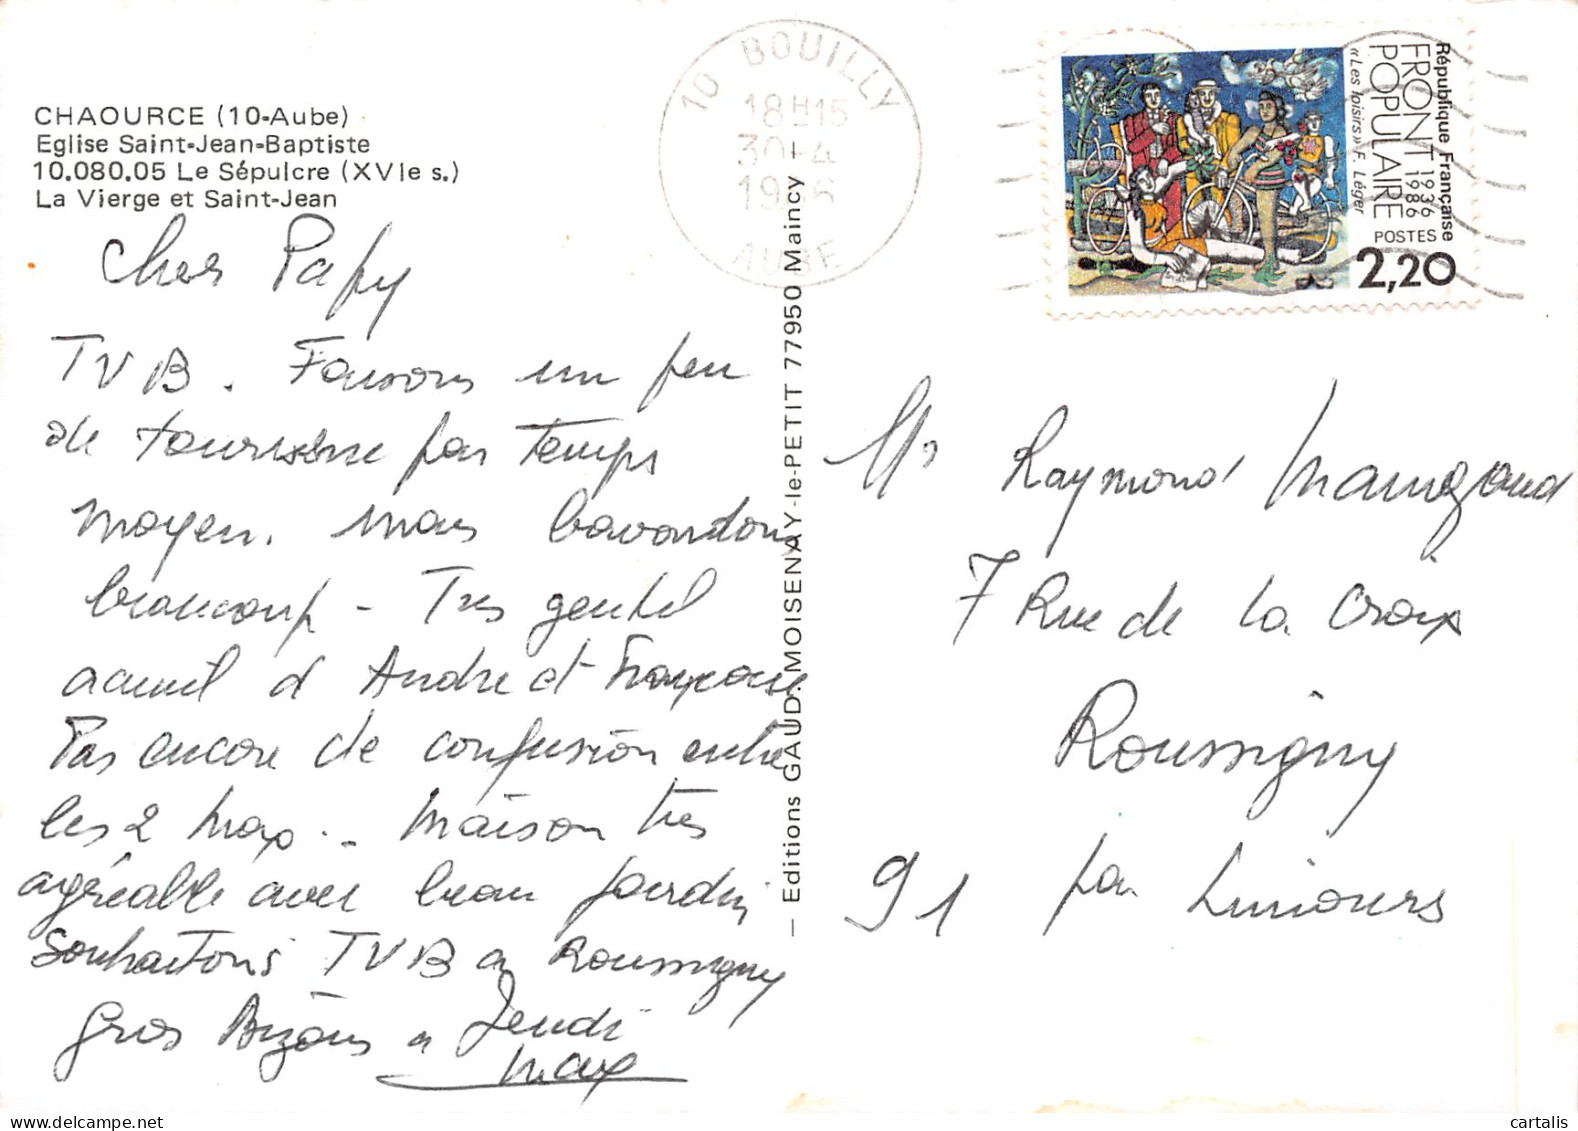 CHAOURCE (10-Aube)
Eglise Saint-Jean-Baptiste
10.080.05 Le Sépulcre (XVIe s.)
La Vierge et Saint-Jean
Cher Papy
TVB. Faisons un peu
de tourisme par temps
moyen. mais bavardons
beaucoup - Tres gentil
acueil d Andre et Françoise
Pas encore de confusion entre
les 2 Max. - Maison tres
agréable avec beau jardin
souhaitons TVB a Roussigny
Gros Bizous a Jeudi
Max
- Editions GAUD. MOISENAY-le-PETIT 77950 Maincy -
10 BOUILLY
18H15
30-4
1986
AUBE
République Française
FRONT 1936
POPULAIRE 1986
«Les loisirs» F. Léger
POSTES
2,20
Mr Raymond
7 Rue de la Croix
Roussigny
91 par Limours
cartalis